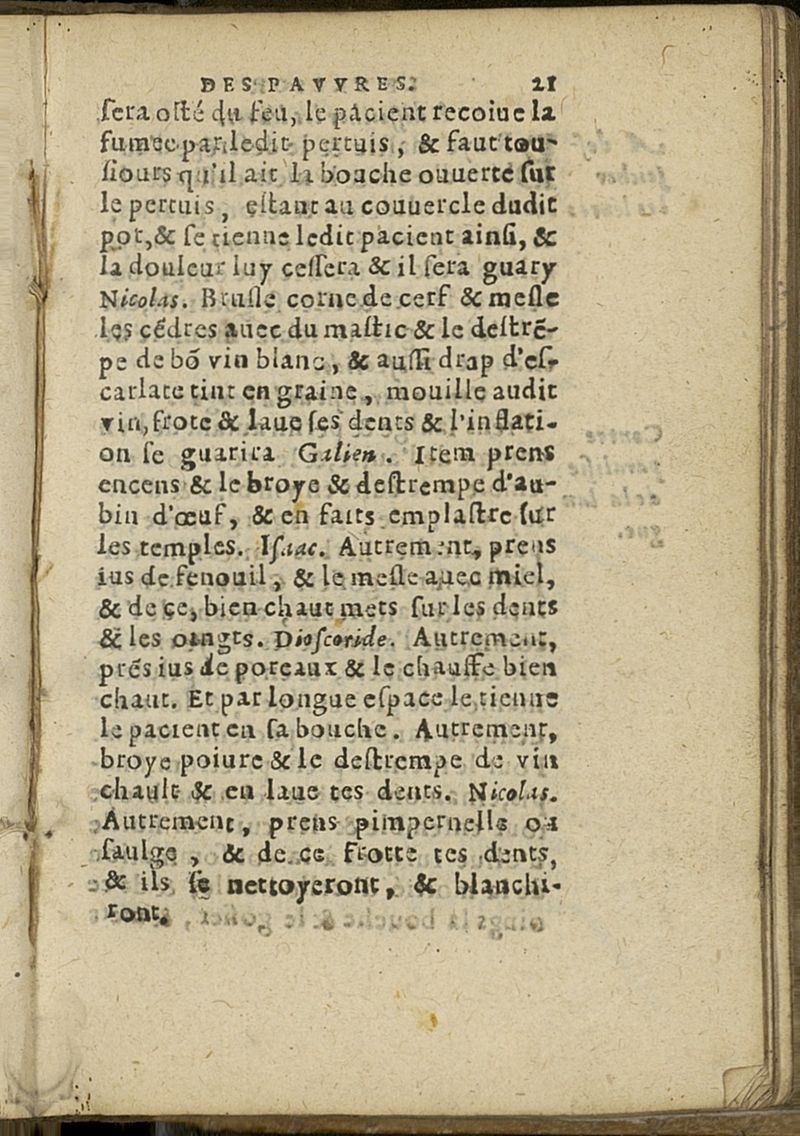 DES PAVVRES. 21
ſera oſté du feu, le pacient recoiue la
fumee par ledit pertuis, & faut tou-
ſiours qu'il ait la bouche ouuerte ſur
le pertuis, eſtant au couuercle dudit
pot, & ſe tienne ledit pacient ainſi, &
la douleur luy ceſſera & il ſera guary
Nicolas. Bruſle corne de cerf & meſle
les cẽdres auec du maſtic & le deſtrẽ-
pe de bõ vin blanc, & auſſi drap d'eſ-
carlate tint en graine, mouille audit
vin, frote & laue ſes dents & l'inflati-
on ſe guarira Galien. Item prens
encens & le broye & deſtrempe d'au-
bin d'œuf, & en faits emplaſtre ſur
les temples. Iſaac. Autrement, prens
ius de fenouil, & le meſle auec miel,
& de ce, bien chaut mets ſur les dents
& les oingts. Dioſcoride. Autrement,
prẽs ius de poreaux & le chauffe bien
chaut. Et par longue eſpace le tienne
le pacient en ſa bouche. Autrement,
broye poiure & le deſtrempe de vin
chault & en laue tes dents. Nicolas.
Autrement, prens pimpernelle ou
ſaulge, & de ce frotte tes dents,
& ils ſe nettoyeront, & blanchi-
ront.